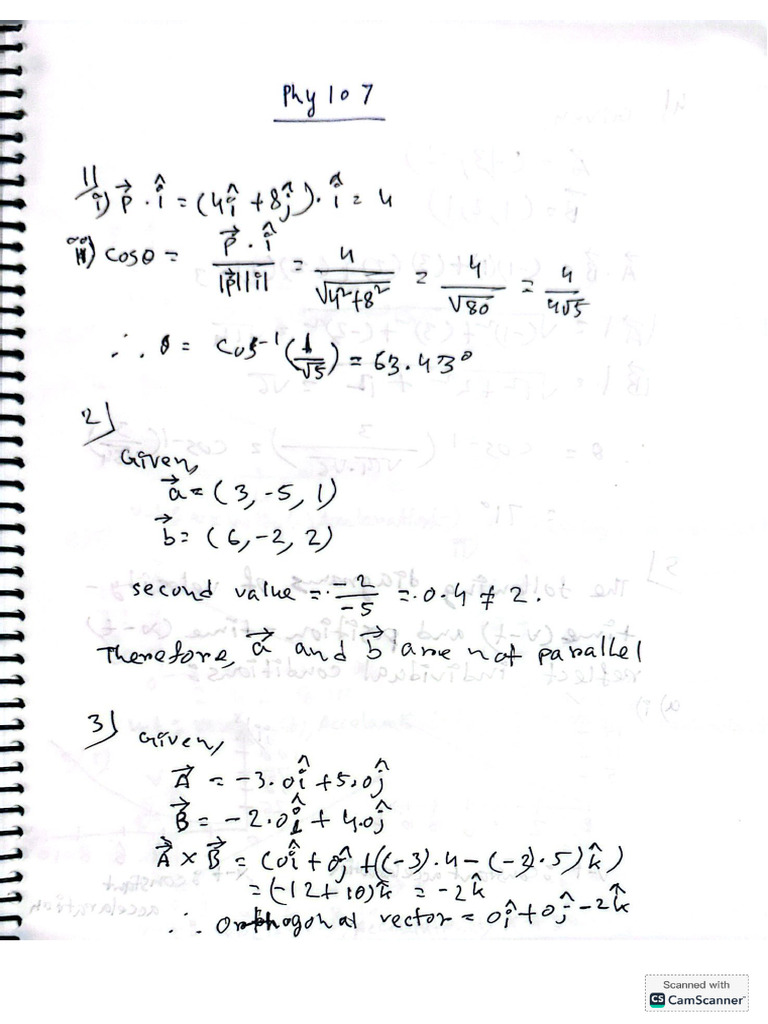 Phy 107
1)
i) P⃗ · î = (4î + 8ĵ) · î = 4
ii) cosθ = P⃗ · î / |P⃗||i| = 4 / √4²+8² = 4 / √80 = 4 / 4√5
∴ θ = cos⁻¹ (1/√5) = 63.43°
2)
Given,
a⃗ = (3, -5, 1)
b⃗ = (6, -2, 2)
second value = -2 / -5 = 0.4 ≠ 2.
Therefore, a⃗ and b⃗ are not parallel
3) Given,
A⃗ = -3.0î + 5.0ĵ
B⃗ = -2.0î + 4.0ĵ
A⃗ × B⃗ = (0î + 0ĵ + ((-3).4 - (-2).5) k̂)
= (-12+10)k̂ = -2k̂
∴ Orthogonal vector = 0î + 0ĵ - 2k̂
Scanned with
CS CamScanner